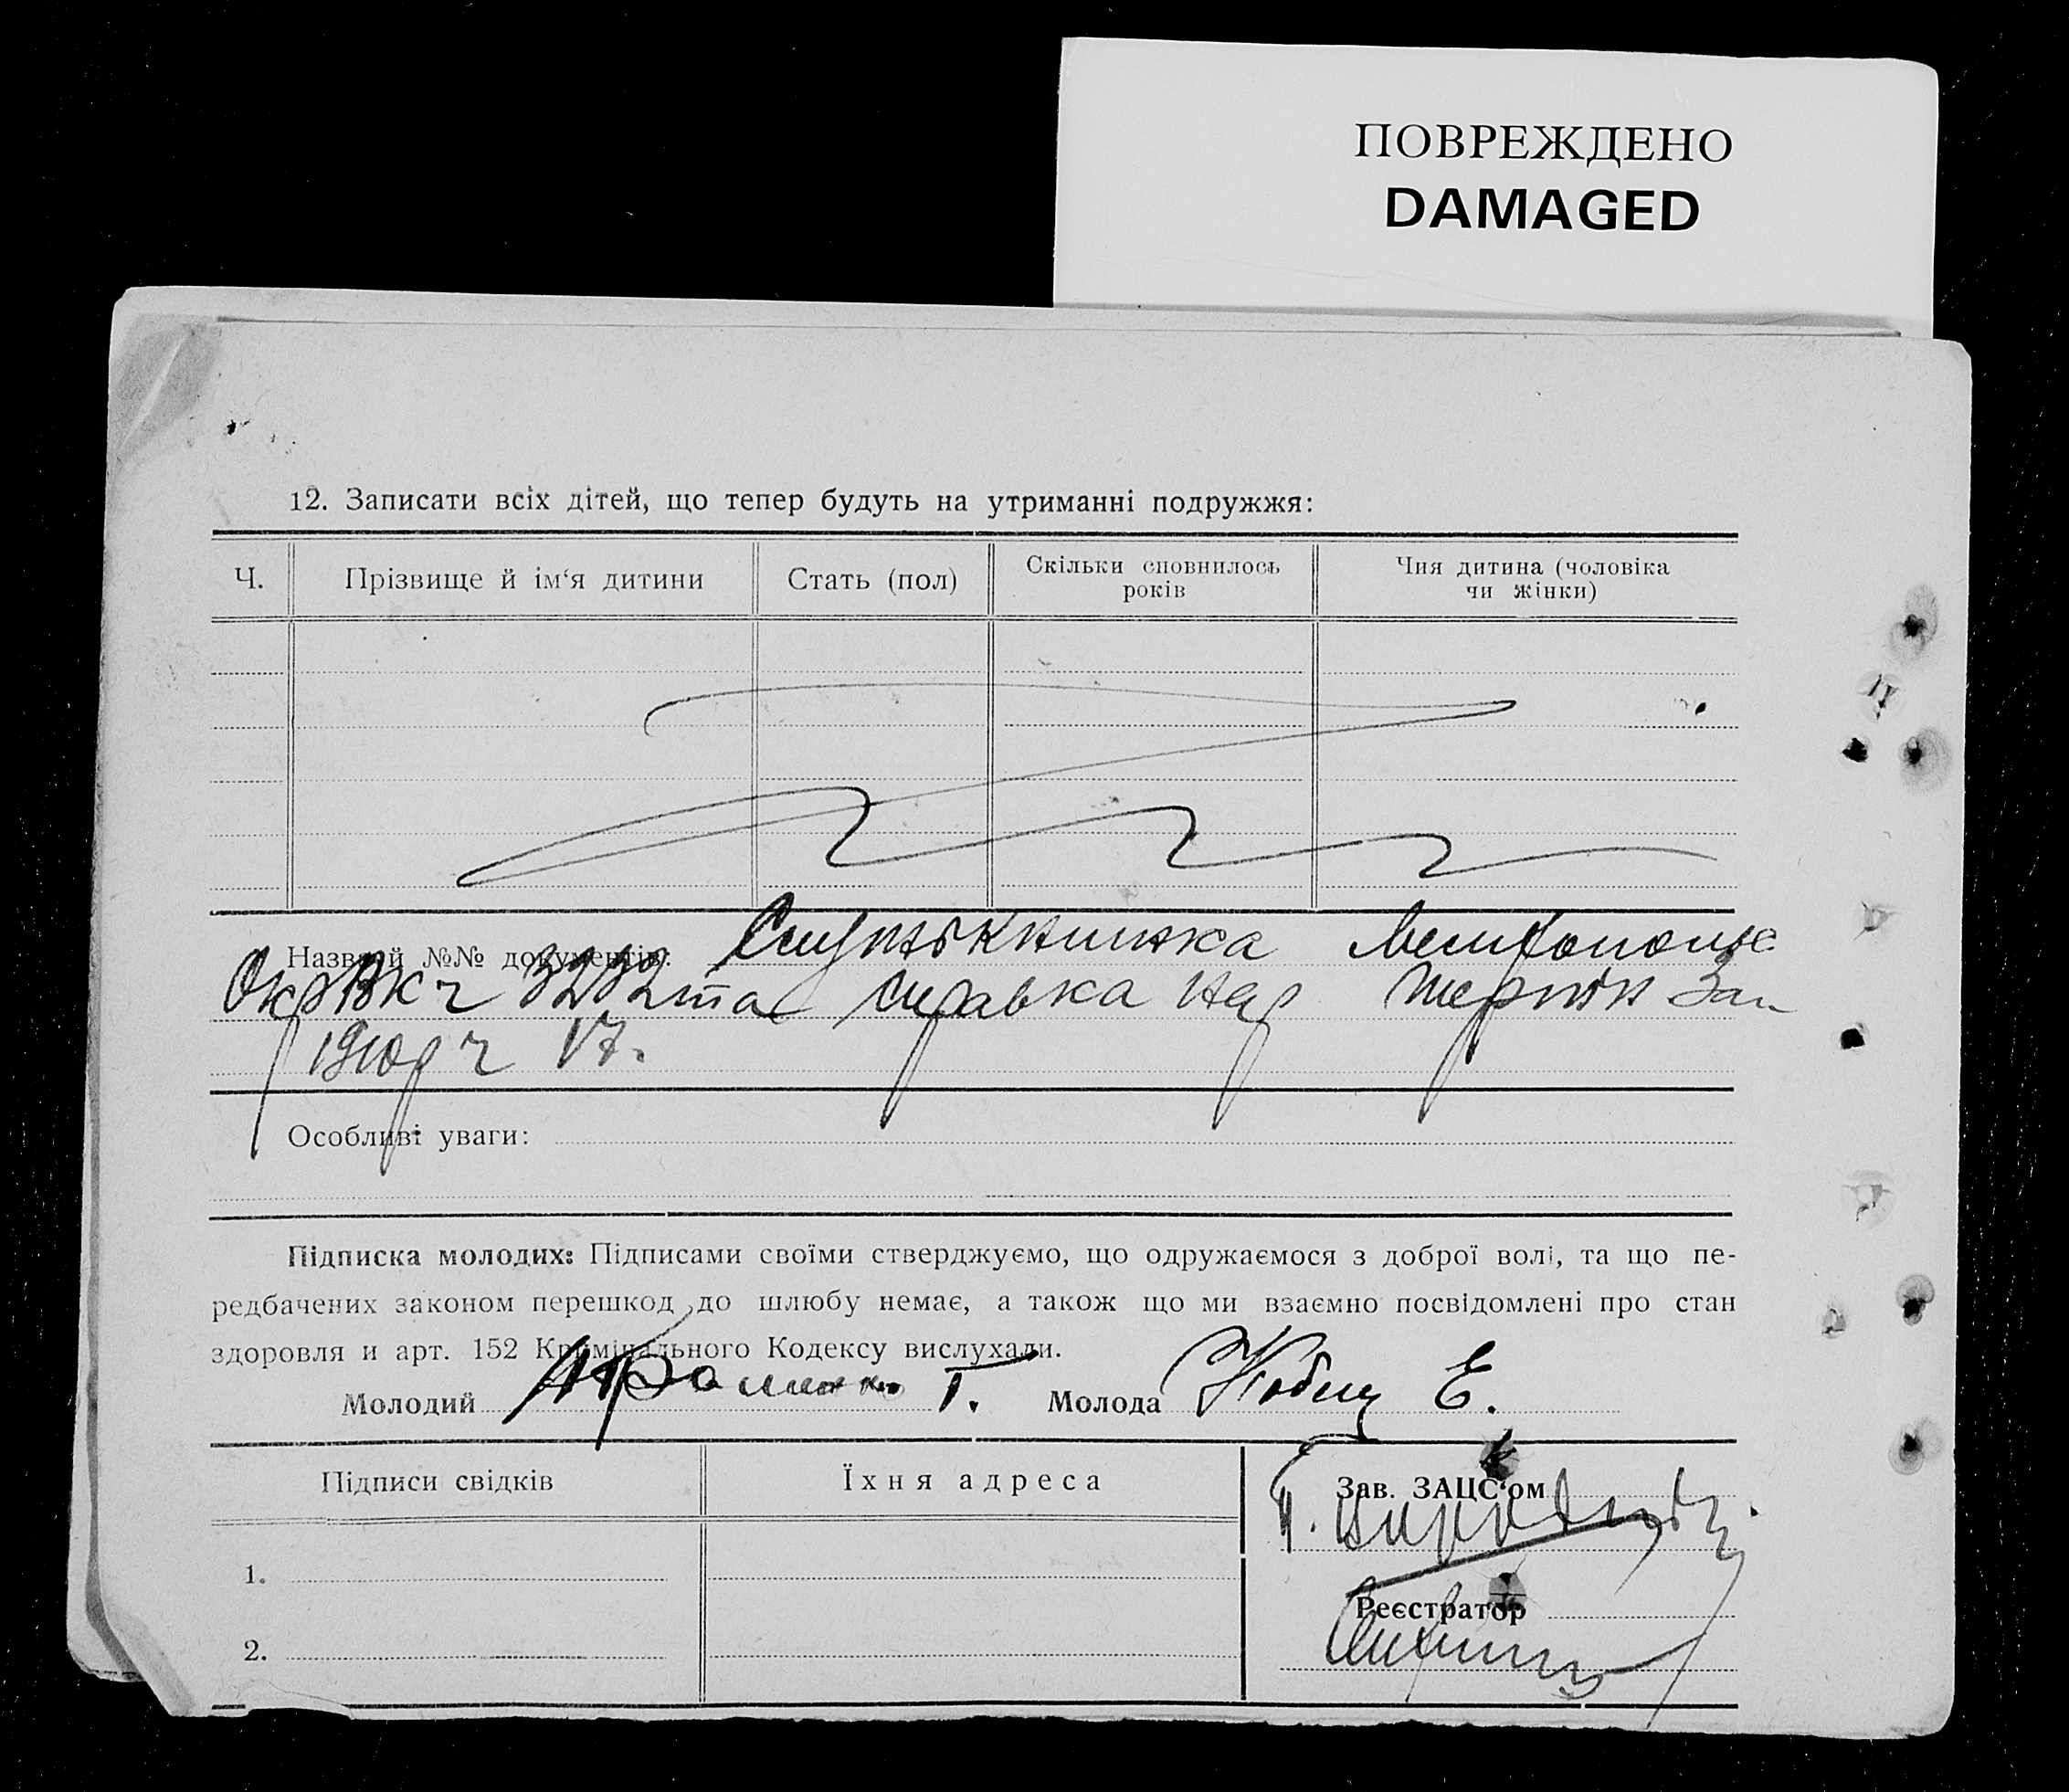 ПОВРЕЖДЕНО
DAMAGED
12. Записати всіх дітей, що тепер будуть на утриманні подружжя:
Ч.
Прізвище й ім‘я дитини
Стать (пол)
Скільки сповнилось
років
Чия дитина (чоловіка
чи жінки)
Назва й №№ документів:
та справка
Особливі уваги:
Підписка молодих: Підписами своїми стверджуємо, що одружаємося з доброї волі, та що пе-
редбачених законом перешкод до шлюбу немає, а також що ми взаємно посвідомлені про стан
здоровля и арт. 152 Кримінального Кодексу вислухали.
Молодий Г. Молода Е.
Підписи свідків
Їхня адреса
Зав. ЗАЦС‘ом
1.
Реєстратор
2.